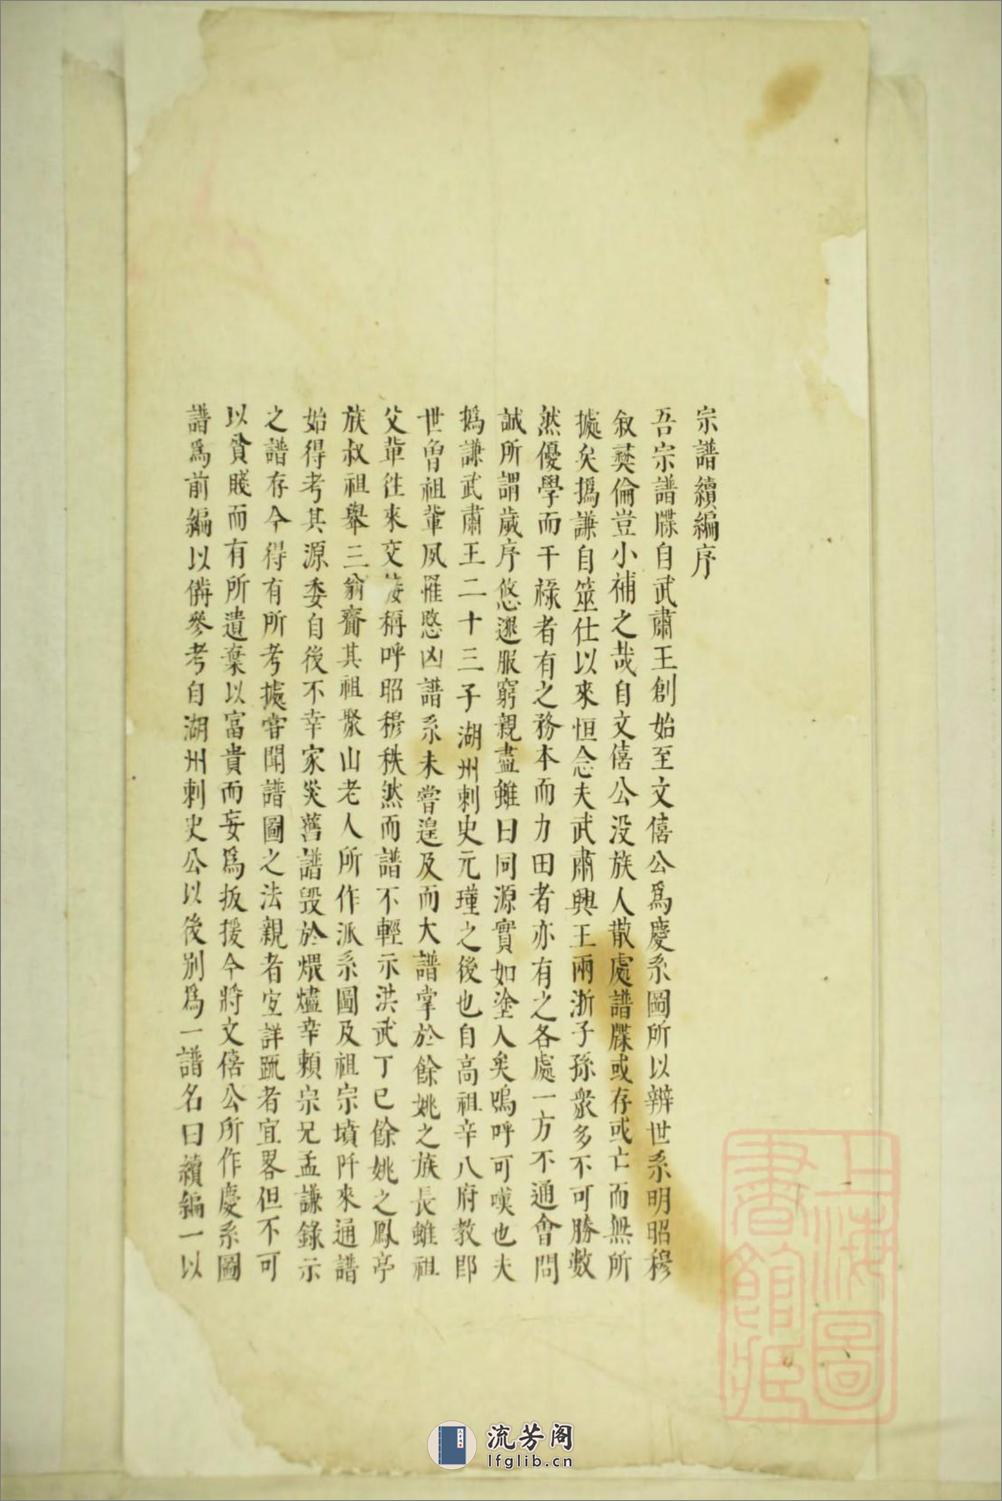 宗譜續編序
吾宗譜牒自武肅王創始至文僖公爲慶系圖所以辨世系明昭穆
叙彛倫豈小補之哉自文僖公没族人散處譜牒或存或亡而無所
據矣撝謙自筮仕以來恒念夫武肅興王兩浙子孫衆多不可勝數
然優學而干祿者有之務本而力田者亦有之各處一方不通會問
誠所謂歲序悠遷服窮親盡雖曰同源實如塗人矣嗚呼可嘆也夫
撝謙武肅王二十三子湖州刺史元瓘之後也自高祖辛八府教郎
世曾祖輩夙罹愍凶譜系未嘗遑及而大譜掌於餘姚之族長雖祖
父輩往來交接稱呼昭穆秩然而譜不輕示洪武丁巳餘姚之鳳亭
族叔祖舉三翁齎其祖聚山老人所作派系圖及祖宗墳阡來通譜
始得考其源委自後不幸家災舊譜毀於煨燼幸頼宗兄孟謙錄示
之譜存今得有所考據甞聞譜圖之法親者宜詳踈者宜畧但不可
以貧賤而有所遺棄以富貴而妄爲扳援今將文僖公所作慶系圖
譜爲前編以俻參考自湖州刺史公以後別爲一譜名曰續編一以
上海圖書館藏
流芳阁
lfglib.cn